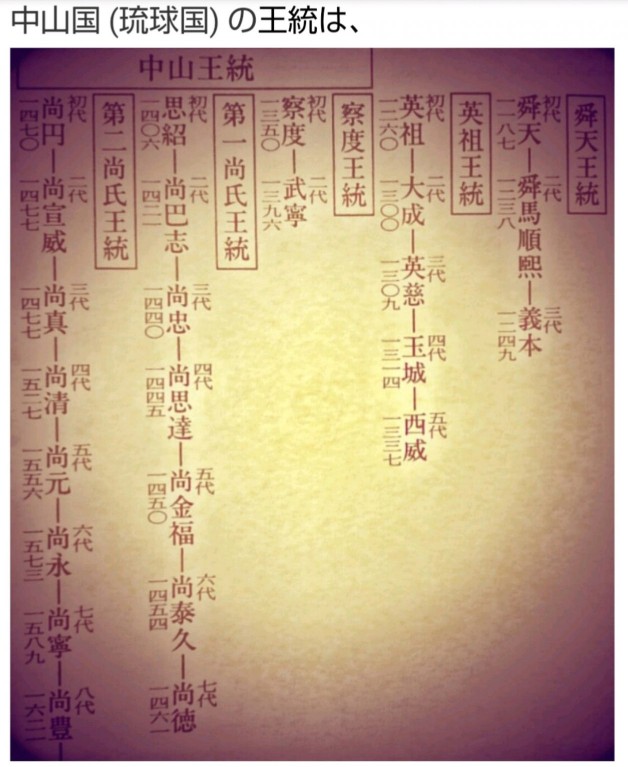 中山国 (琉球国) の王統は、
中山王統
舜天王統
初代 二代 三代
舜天―舜馬順熙―義本
一一八七 一二三八 一二四九
英祖王統
初代 二代 三代 四代 五代
英祖―大成―英慈―玉城―西威
一二六〇 一三〇〇 一三〇九 一三一四 一三三七
察度王統
初代 二代
察度―武寧
一三五〇 一三九六
第一尚氏王統
初代 二代 三代 四代 五代 六代 七代
思紹―尚巴志―尚忠―尚思達―尚金福―尚泰久―尚徳
一四〇六 一四四〇 一四四五 一四五〇 一四五四 一四六一
第二尚氏王統
初代 二代 三代 四代 五代 六代 七代 八代
尚円―尚宣威―尚真―尚清―尚元―尚永―尚寧―尚豊―
一四七〇 一四七七 一四七七 一五二七 一五五六 一五七三 一五八九 一六二一